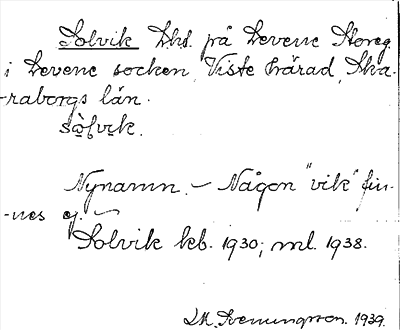 Solvik Lhs. på Levene Storeg.
i Levene socken, Viste härad, Ska-
-raborgs län.
sò̱lvik.
Nynamn. – Någon "vik" fin-
-nes ej. –
Solvik kb. 1930; ml. 1938.
Henningsson. 1939.